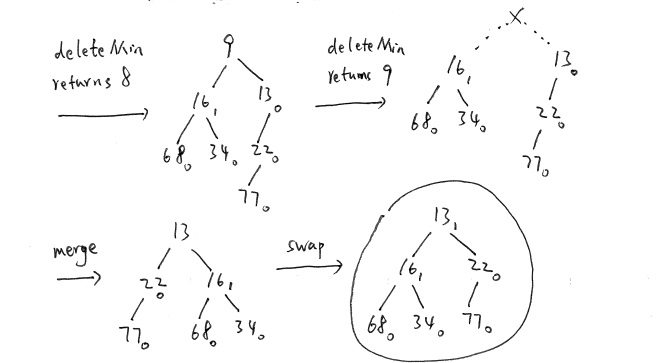 deleteMin
returns 8
9
16₁ 13₀
68₀ 34₀ 22₀
77₀
deleteMin
returns 9
X
16₁ 13₀
68₀ 34₀ 22₀
77₀
merge
13
22₀ 16₁
77₀ 68₀ 34₀
swap
13₁
16₁ 22₀
68₀ 34₀ 77₀